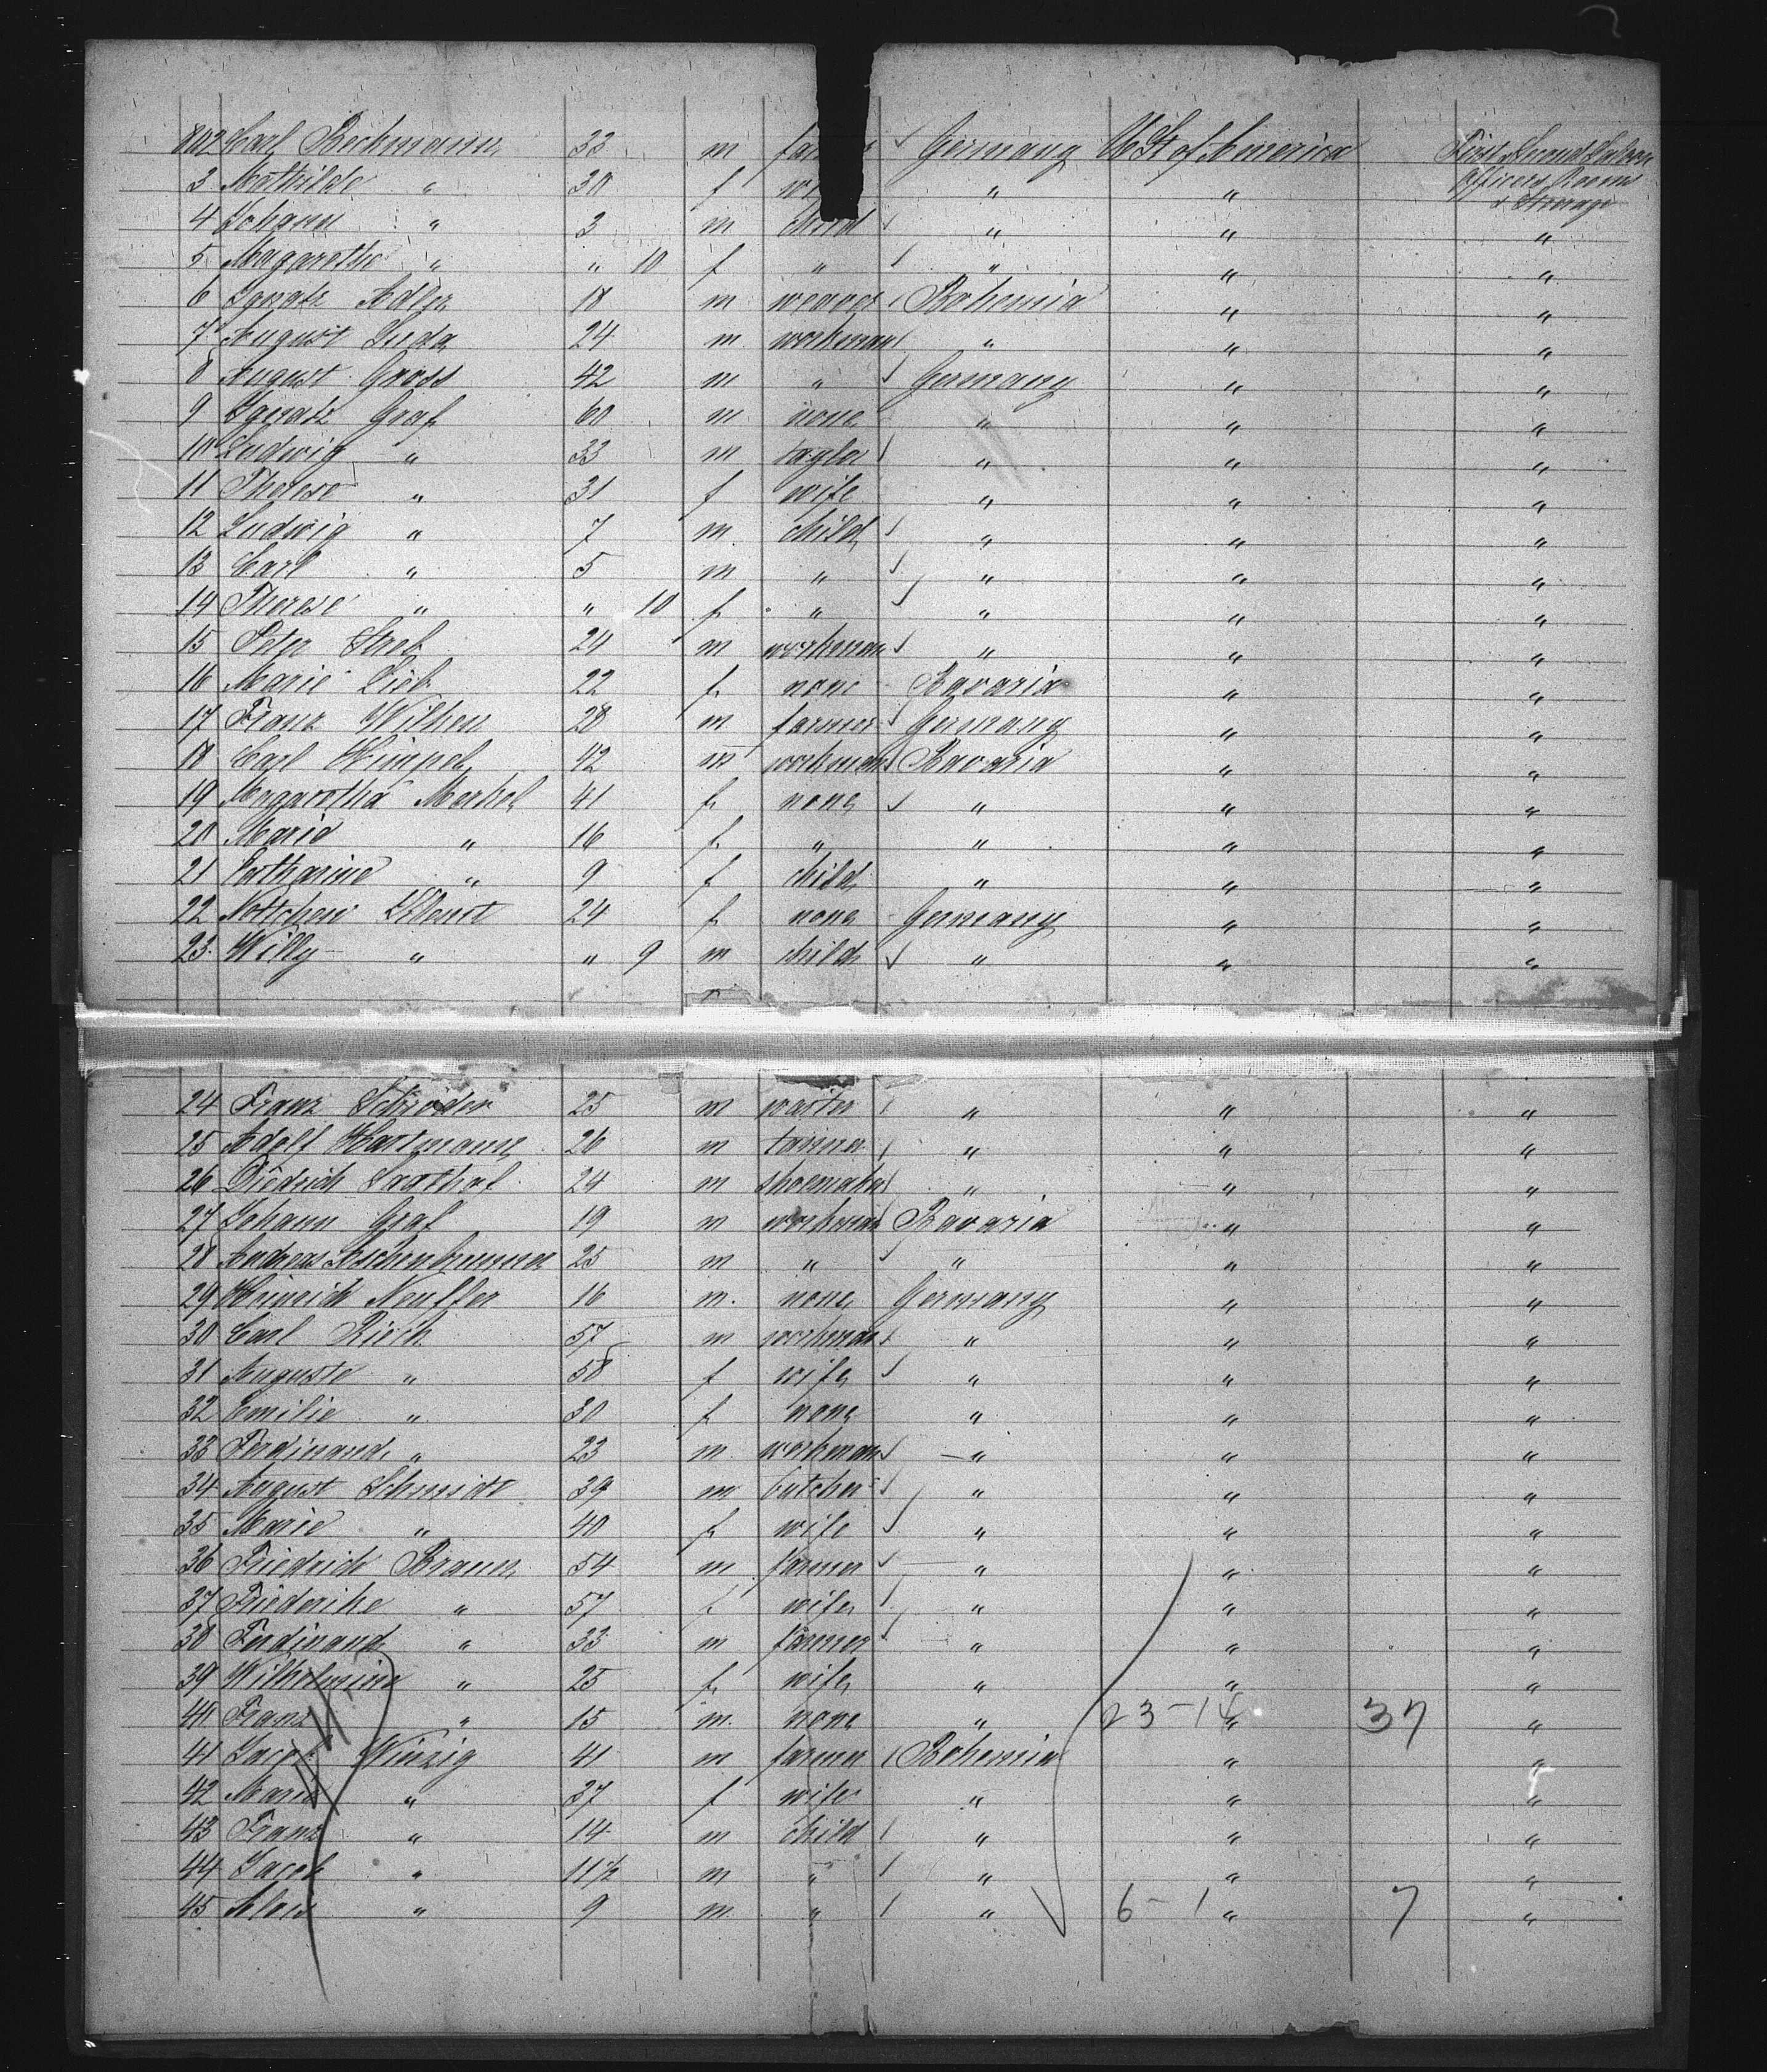 802 Carl Beckmann 33 m Germany U St of America First, Second Saloon
Officers Room
& Steerage
3 Mathilde " 30 f " "
4 Johann " 3 m child " " "
5 Magarethe " " 10 f " " " "
6 Ignatz Adler 18 m weaver Bohemia " "
7 August Luda 24 m workman " " "
8 August Gross 42 m " Germany " "
9 Ignatz Graf 60 m none " " "
10 Ludwig " 33 m taylor " " "
11 Therese " 31 f wife " " "
12 Ludwig " 7 m child " " "
13 Carl " 5 m " " " "
14 Therese " " 10 f " " " "
15 Peter Streb 24 m workman " " "
16 Marie Lieb 22 f none Bavaria " "
17 Franz Wilken 28 m farmer Germany " "
18 Carl Himpel 42 m workman Bavaria " "
19 Magaretha Merkel 41 f none " " "
20 Marie " 16 f " " " "
21 Catharine " 9 f child " " "
22 Nettchen 24 f none Germany " "
23 Willy " " 9 m child " " "
24 Franz Schröder 25 m waiter " " "
25 Adolf Hartmann 26 m tanner " " "
26 Diedrich 24 m shoemaker " " "
27 Johann Graf 19 m workman Bavaria " "
28 Andreas Aschenbrenner 25 m " " " "
29 Heinrich Neuffer 16 m none Germany " "
30 Carl Riech 57 m workman " " "
31 Auguste " 58 f wife " " "
32 Emilie " 30 f none " " "
33 Ferdinand " 23 m workman " " "
34 August Schmidt 39 m butcher " " "
35 Marie " 40 f wife " " "
36 Friedrich Braun 54 m farmer " " "
37 Friederike " 57 f wife " " "
38 Ferdinand " 33 m farmer " " "
39 Wilhelmine " 25 f wife " " "
40 Franz " 15 m none " 23-14 " 37 "
41 Jacob Winzig 41 m farmer Bohemia " "
42 Marie " 37 f wife " " "
43 Franz " 14 m child " " "
44 Jacob " 11 1/2 m " " " "
45 Alois " 9 m " " 6-1 " 7 "